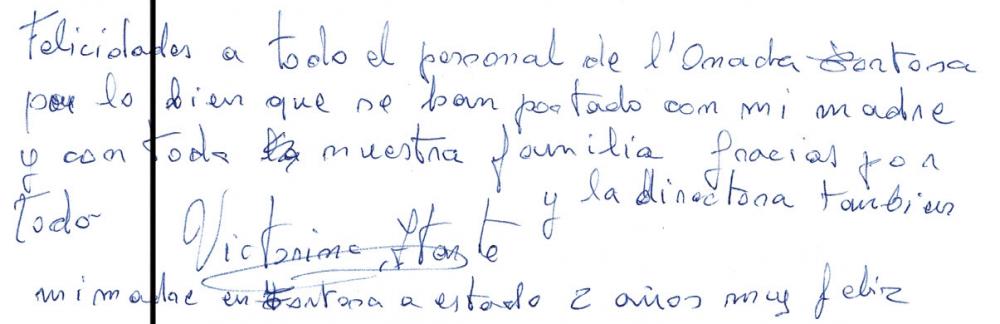 Felicidades a todo el personal de l'Onada Tortosa
por lo bien que se han portado con mi madre
y con toda nuestra familia gracias por
todo y la directora tambien
Victorina
mi madre en tortosa a estado 2 años muy feliz